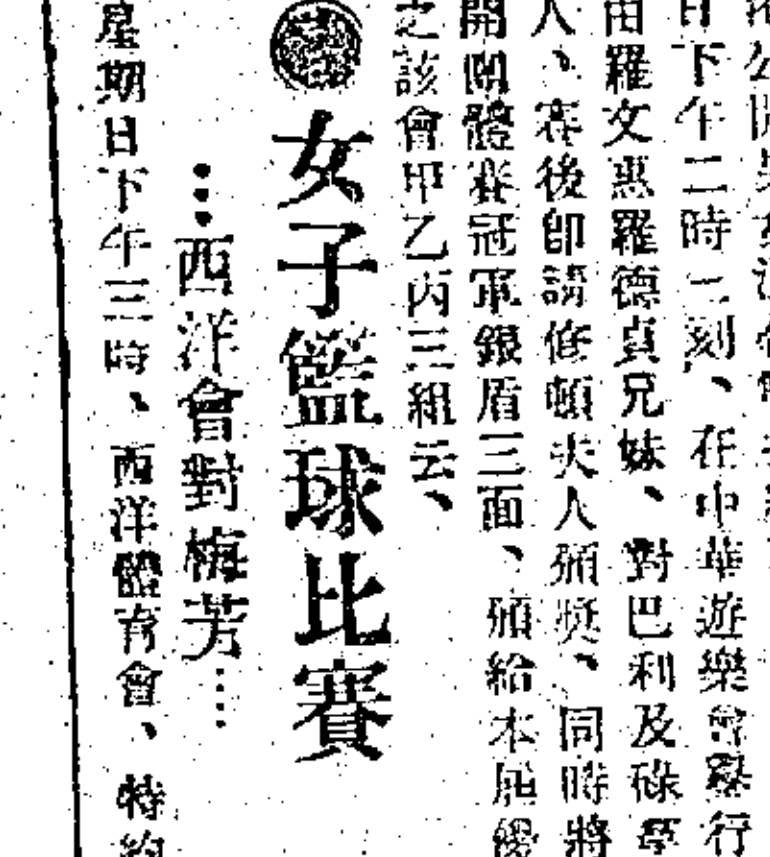 日下午二時一刻、在中華遊樂會舉行
由羅文惠羅德貞兄妹、對巴利及碌
人、賽後即請修頓夫人頒奬、同時將
開團體賽冠軍銀盾三面、頒給本屆
之該會甲乙丙三組云、
女子籃球比賽
⋯西洋會對梅芳⋯
星期日下午三時、西洋體育會、特約